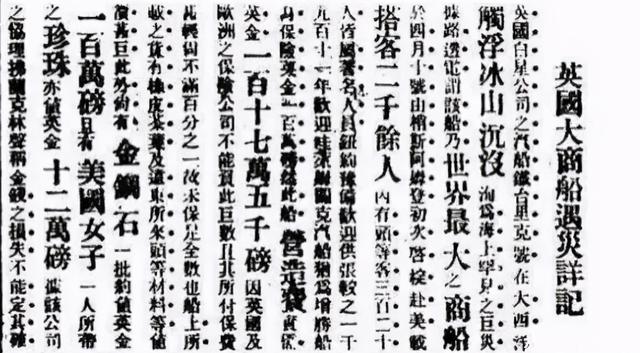 英國大商船遇災詳記
英國白星公司之汽船鐵台里克號在大西洋
觸浮冰山沉沒洵爲海上罕見之巨災
據路透電謂該船乃世界最大之商船
於四月十號由梢斯阿姆登初次啓椗赴美載
搭客二千餘人內有頭等客三百二十
人皆國著名人員紐約豫備歡迎供張較之一千
九百十一年歡迎 汽船猶爲增勝船
身保險英金一百萬磅 此船營造費實值
英金一百十七萬五千磅因英國及
歐洲之保險公司不能負此巨數且其所付保費
甚輕尙不滿百分之一故未保足全數也船上所
載之貨有橡皮茶葉及遠東所來頭等材料等值
價甚巨此外約有金鋼石一批約值英金
一百萬磅且有美國女子一人所帶
之珍珠亦值英金十二萬磅據該公司
之協理拂蘭克林聲稱金錢之損失不能定其確